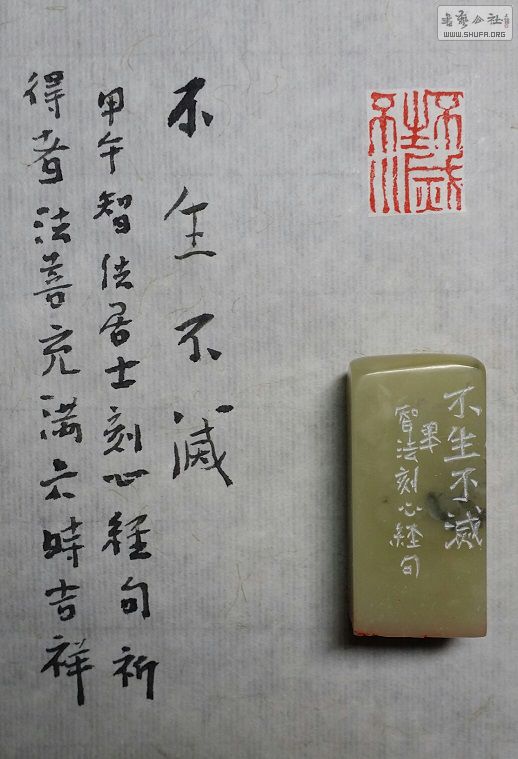 书艺公社
WWW.SHUFA.ORG
不生不滅
甲午智法居士刻心經句祈
得者法善充满六時吉祥
不生不滅
不生不滅
智法刻心経句